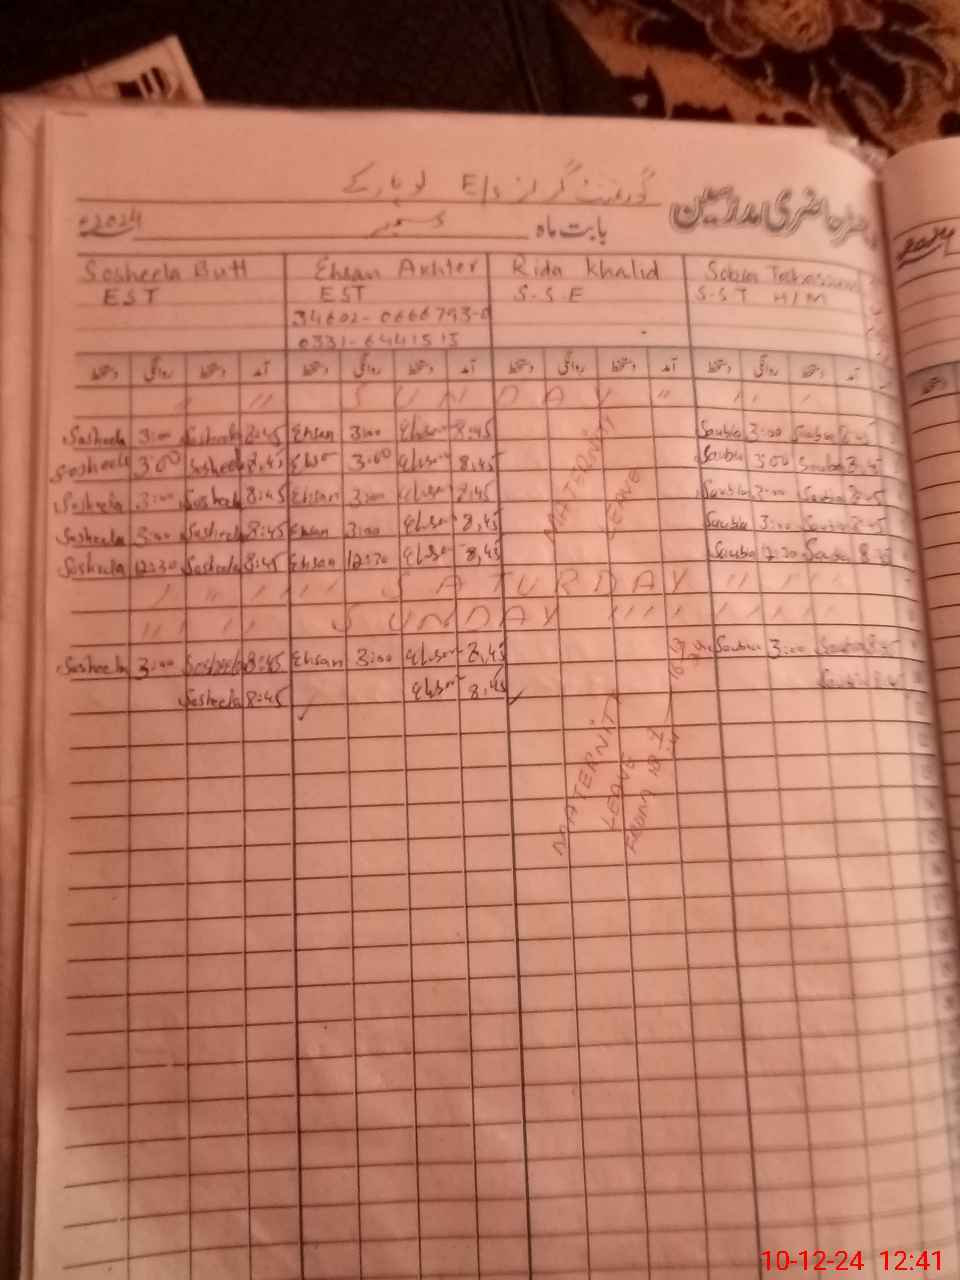 رجسٹر حاضری مدرسین گورنمنٹ گرلز E/S
2024ء بابت ماہ دسمبر
Sosheela Butt Ehsan Akhter Rida Khalid Sobia
EST EST S-S-E S-ST H/M
0331-6441515
دستخط روانگی دستخط آمد دستخط روانگی دستخط آمد دستخط روانگی دستخط آمد دستخط روانگی دستخط آمد
" " SUNDAY " " "
Sosheela 3:00 Sosheela 8:45 Ehsan 3:00 Ehsan 8:45 Saubia 3:00 Saubia 8:45
Sosheela 3:00 Sosheela 8:45 Ehsan 3:00 Ehsan 8,45 Saubia 3:00 Saubia
Sosheela 3:00 Sosheela 8:45 Ehsan 3:00 Ehsan 8,45 Saubia 3:00 Saubia 8:45
Sosheela 3:00 Sosheela 8:45 Ehsan 3:00 Ehsan 8,45 Saubia 3:00 Saubia 8:45
Sosheela 12:30 Sosheela 8:45 Ehsan 12:30 Ehsan 8,45 Saubia 12:30 Saubia 8:45
MATERNITY
LEAVE
SATURDAY
SUNDAY
Sosheela 3:00 Sosheela 8:45 Ehsan 3:00 Ehsan 8,45 Saubia 3:00 Saubia 8:45
Sosheela 8:45 Ehsan 8,45 Saubia 8:45
MATERNITY
LEAVE
FROM
10-12-24 12:41